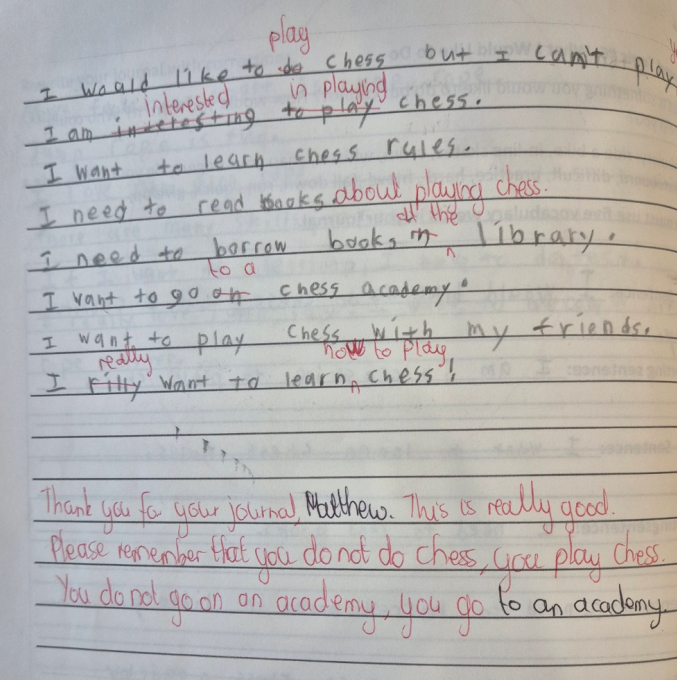 play
I would like to do chess but I can't play
interested in playing
I am interesting to play chess.
I want to learn chess rules.
I need to read books about playing chess.
at the
I need to borrow books in library.
to a
I want to go on chess academy.
I want to play chess with my friends.
really how to play
I rilly want to learn chess!
Thank you for your journal, Matthew. This is really good.
Please remember that you do not do chess, you play chess.
You do not go on an academy, you go to an academy.